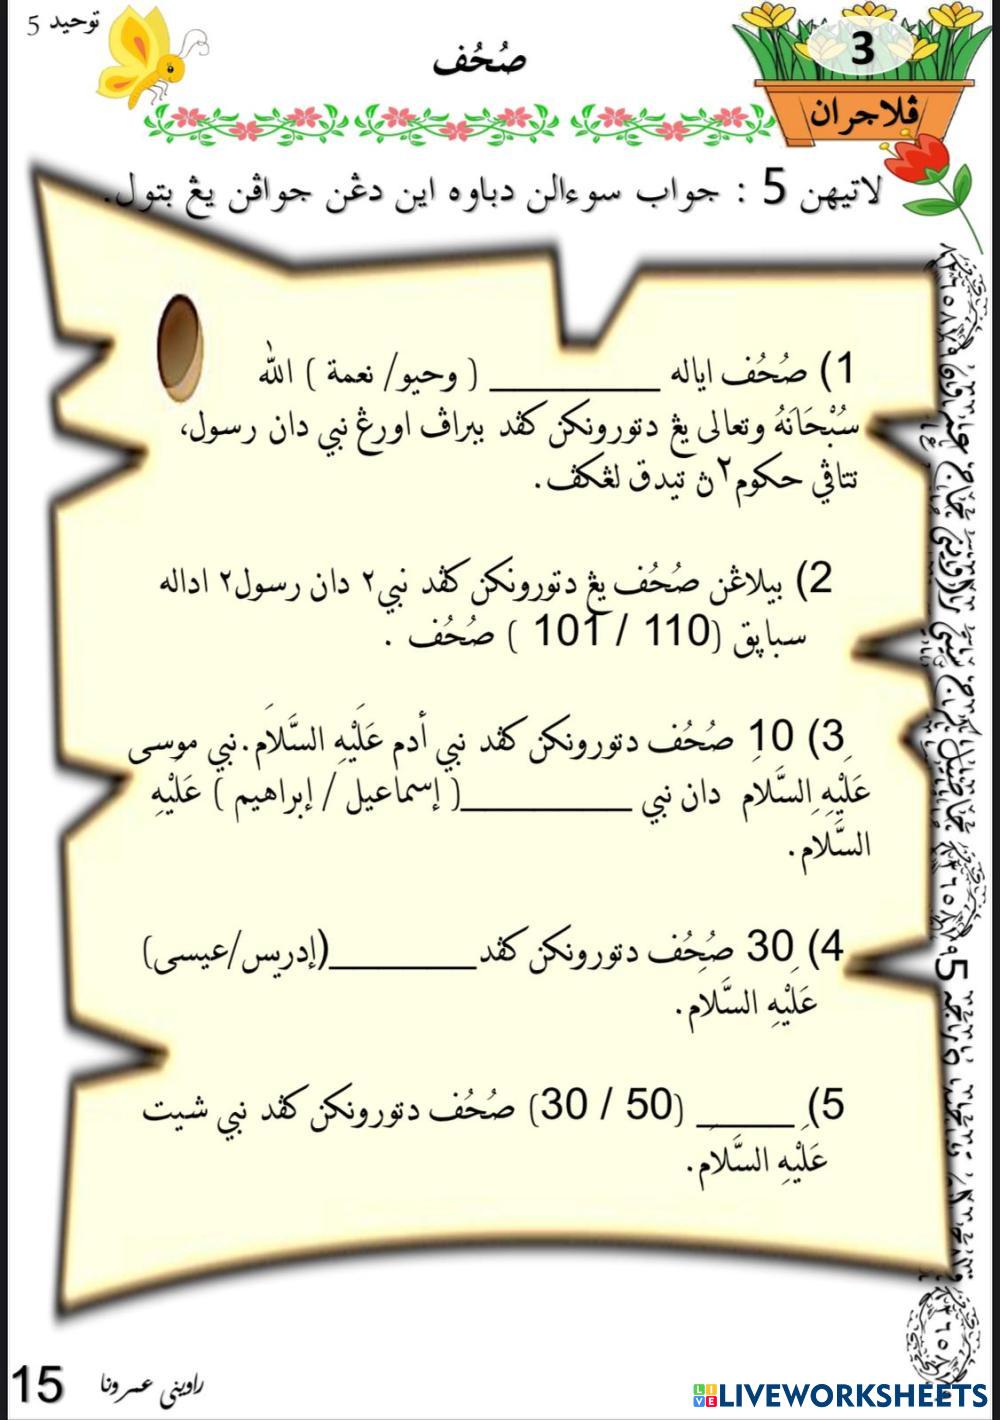 توحيد 5
صُحُف
3
ڤلاجرن
لاتيهن 5 : جواب سوءالن دباوه اين دڠن جواڤن يڠ بتول.
1) صُحُف اياله __________ ( وحيو/ نعمة ) الله
سُبْحَانَهُ وتعالى يڠ دتورونكن كڤد ببراڤ اورڠ نبي دان رسول،
تتاڤي حكوم٢ڽ تيدق لڠكڤ.
2) بيلاڠن صُحُف يڠ دتورونكن كڤد نبي٢ دان رسول٢ اداله
سباڽق (110 / 101 ) صُحُف .
3) 10 صُحُف دتورونكن كڤد نبي أدم عَلَيْهِ السَّلَام.نبي موسى
عَلَيْهِ السَّلَام دان نبي __________( إسماعيل / إبراهيم ) عَلَيْهِ
السَّلَام.
4) 30 صُحُف دتورونكن كڤد_________(إدريس/عيسى)
عَلَيْهِ السَّلَام.
5) ______ (50 / 30) صُحُف دتورونكن كڤد نبي شيت
عَلَيْهِ السَّلَام.
15
راويني عمرونا
LIVEWORKSHEETS